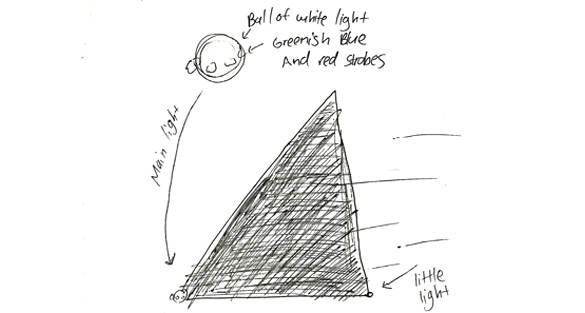 Ball of white light
Greenish Blue
And red strobes
Main light
little
light